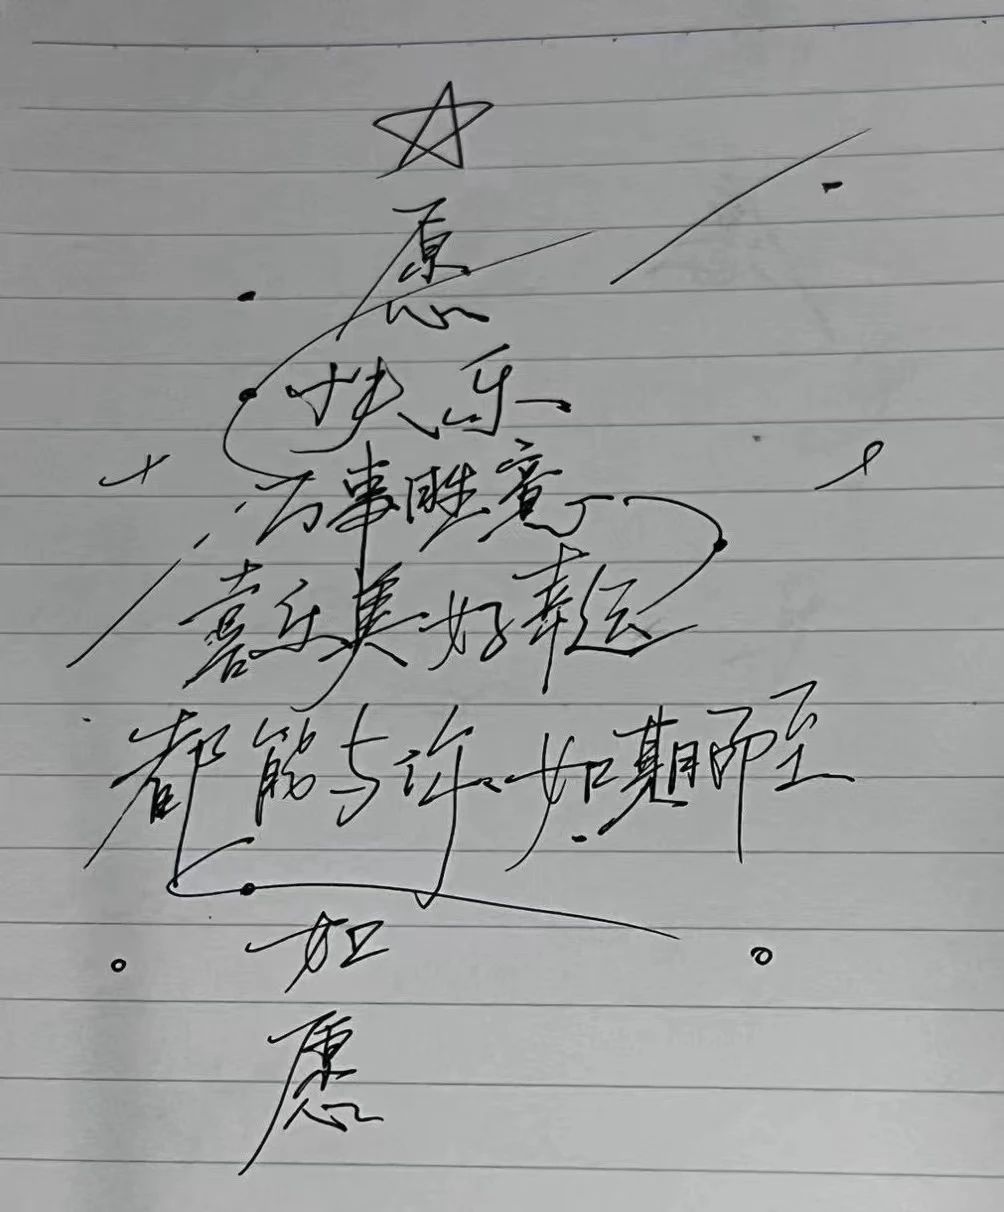 愿
快乐
万事胜意
喜乐美好幸运
都能与许如期而至
如
愿